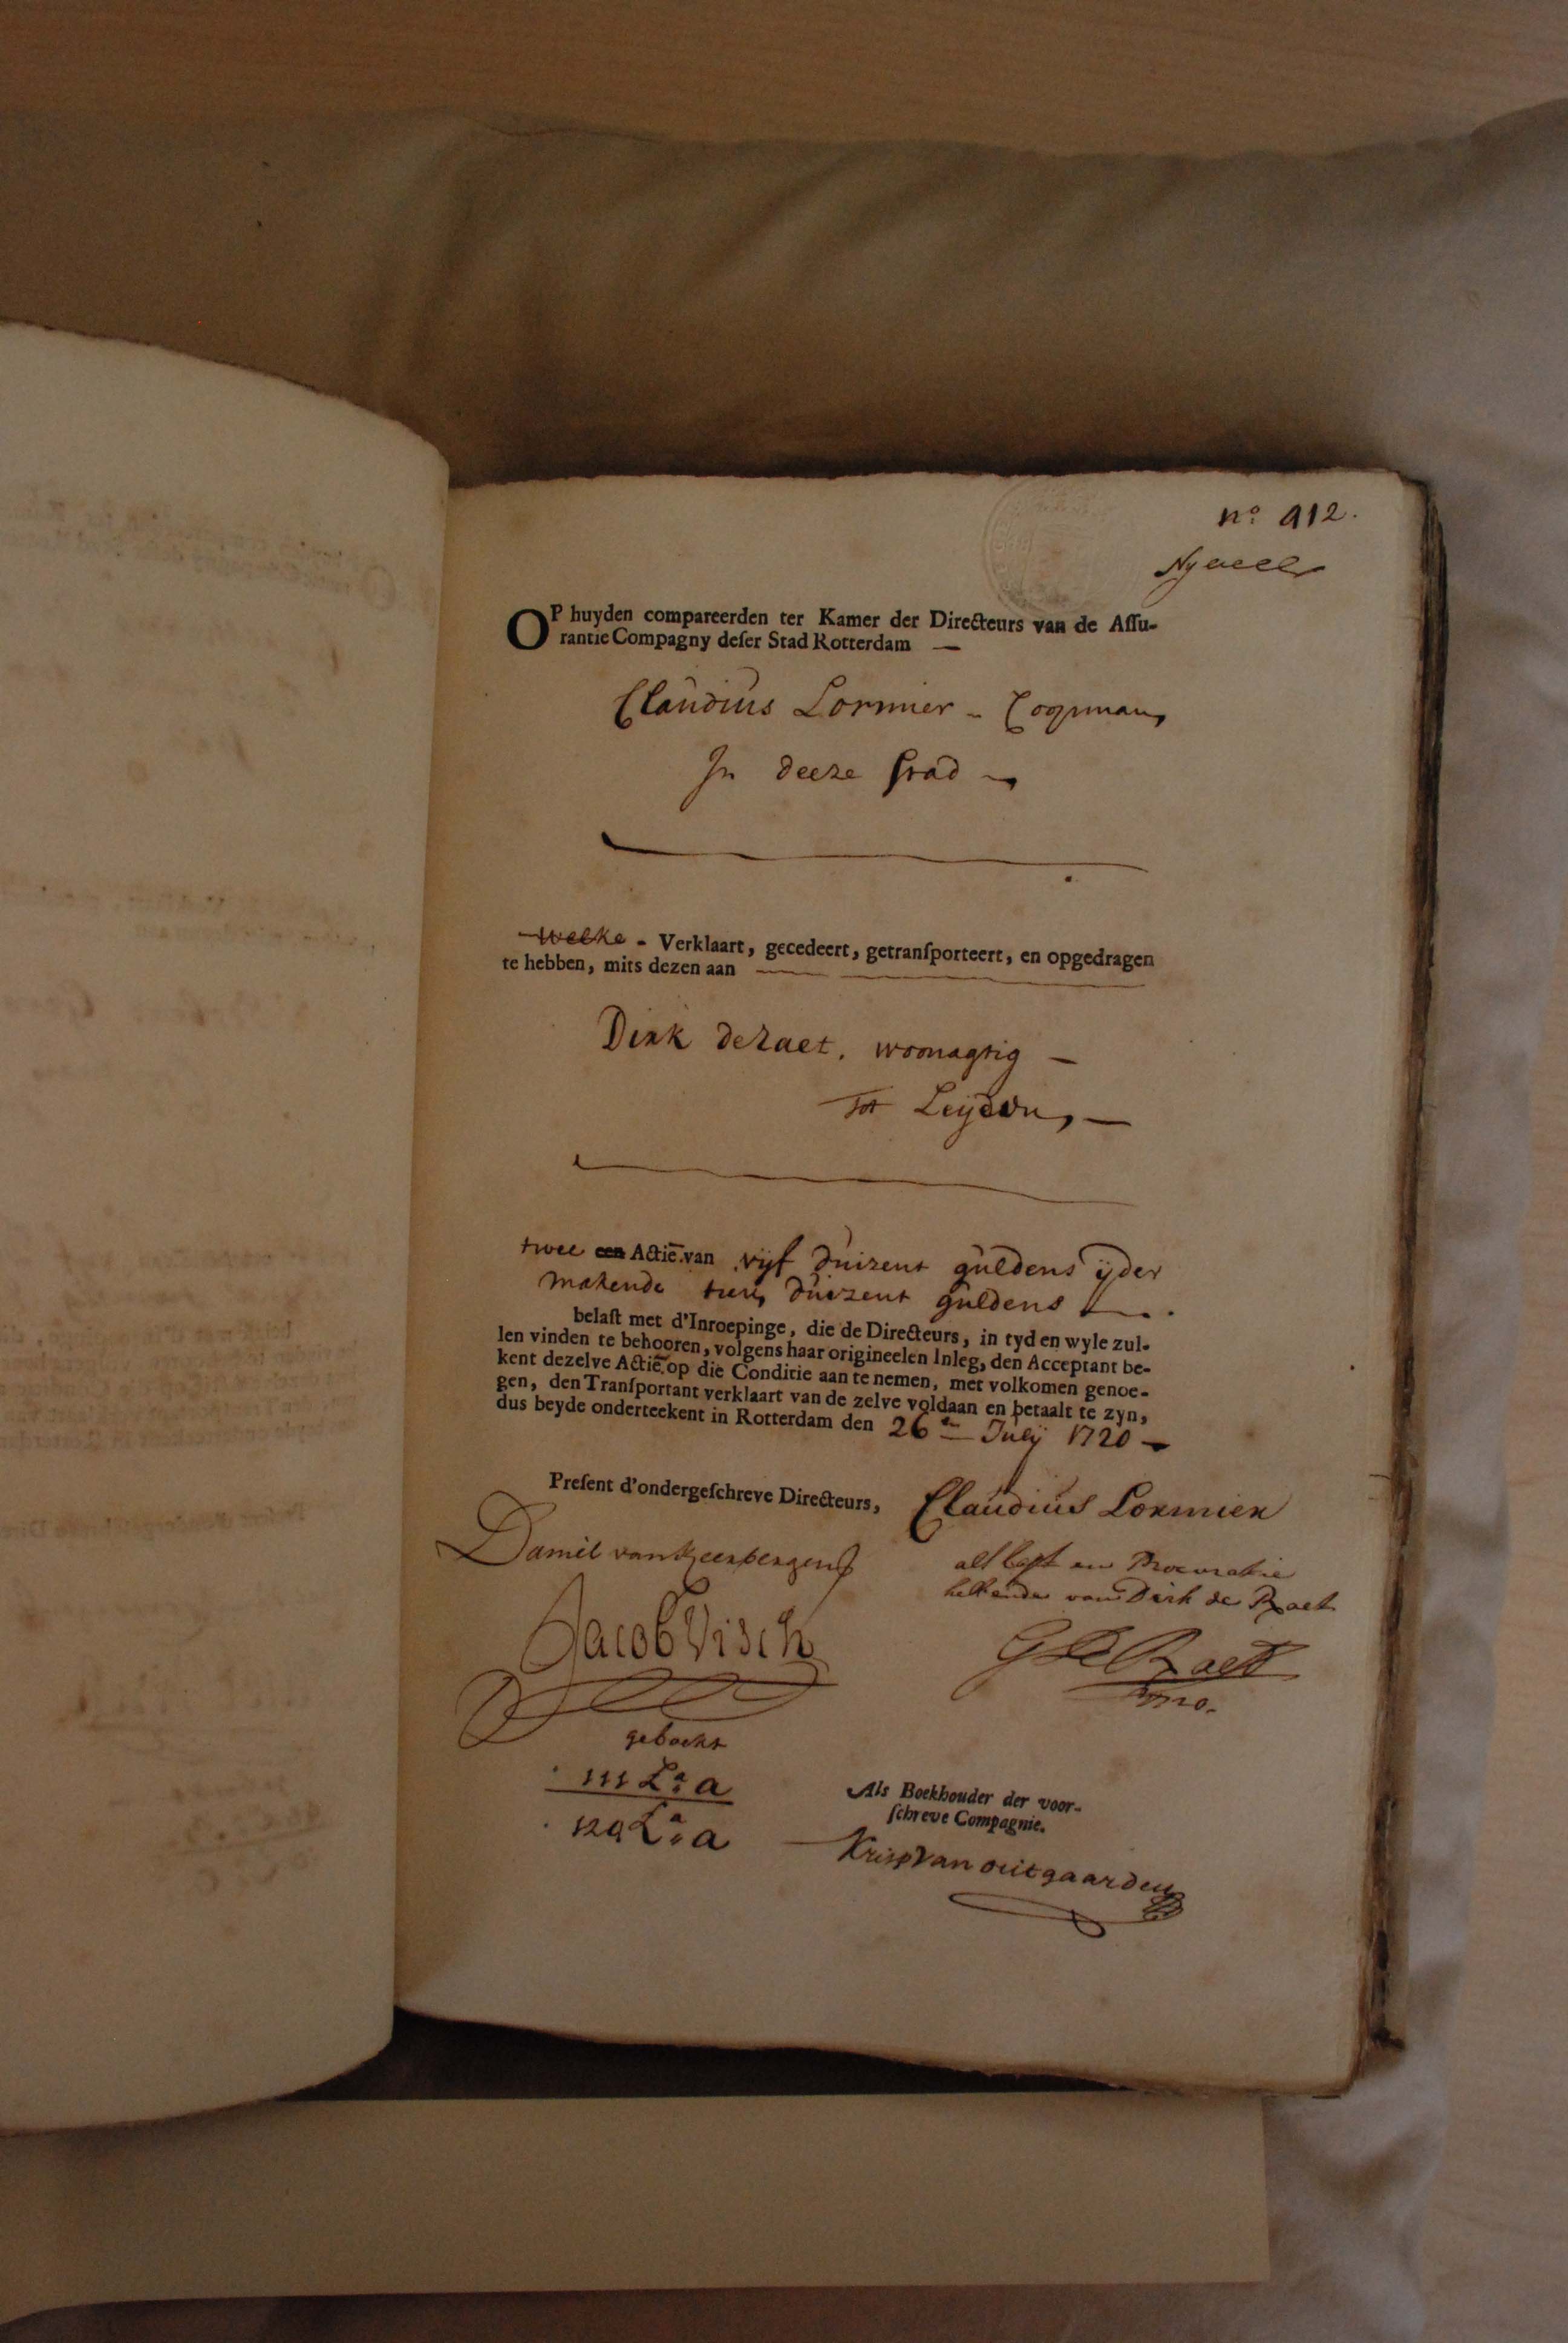 nº 912.
OP huyden compareerden ter Kamer der Directeurs van de Assu-
rantie Compagny deser Stad Rotterdam —
Claudius Lormier - Coopman,
In deeze Stad
Welke - Verklaart, gecedeert, getransporteert, en opgedragen
te hebben, mits dezen aan
Dirk de Raet, woonagtig —
Tot Leyden, —
twee een Actiē van vijf duizent guldens ijder
makende tien duizent guldens
belast met d'Inroepinge, die de Directeurs, in tyd en wyle zul-
len vinden te behooren, volgens haar origineelen Inleg, den Acceptant be-
kent dezelve Actiē op die Conditie aan te nemen, met volkomen genoe-
gen, den Transportant verklaart van de zelve voldaan en betaalt te zyn,
dus beyde onderteekent in Rotterdam den 26en July 1720 —
Present d'ondergeschreve Directeurs,
Claudius Lormier
Daniel van Keerbergen
als last en Procuratie
hebbende van Dirk de Raet
Jacob Visch
G De Raet
geboekt
111 La a
129 La a
Als Boekhouder der voor-
schreve Compagnie.
Krisp Van outgaarden